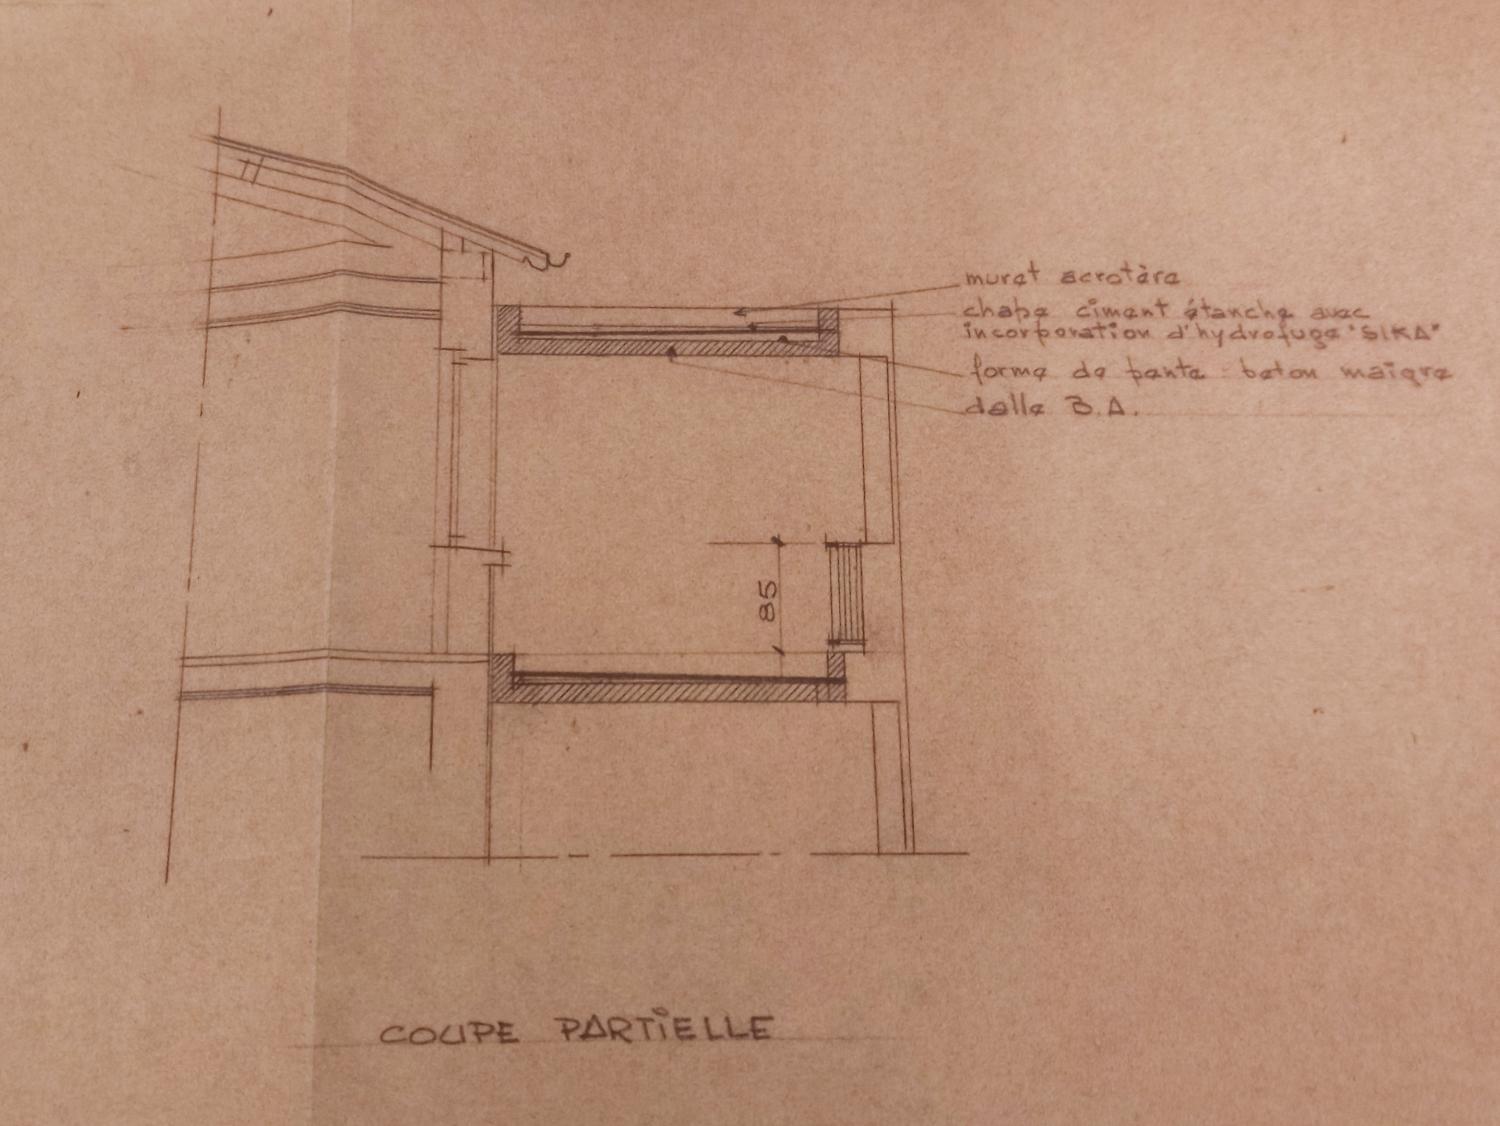 muret acrotère
chape ciment étanche avec
incorporation d'hydrofuge "SIKA"
forme de pente béton maigre
dalle B.A.
85
COUPE PARTIELLE